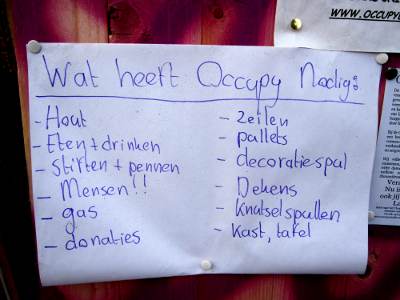 WWW.OCCUPY
Wat heeft Occupy Nodig:
- Hout
- Eten + drinken
- Stiften + pennen
- Mensen!!
- gas
- donaties
- zeilen
- pallets
- decoratiespal
- Dekens
- Knutselspullen
- Kast, tafel